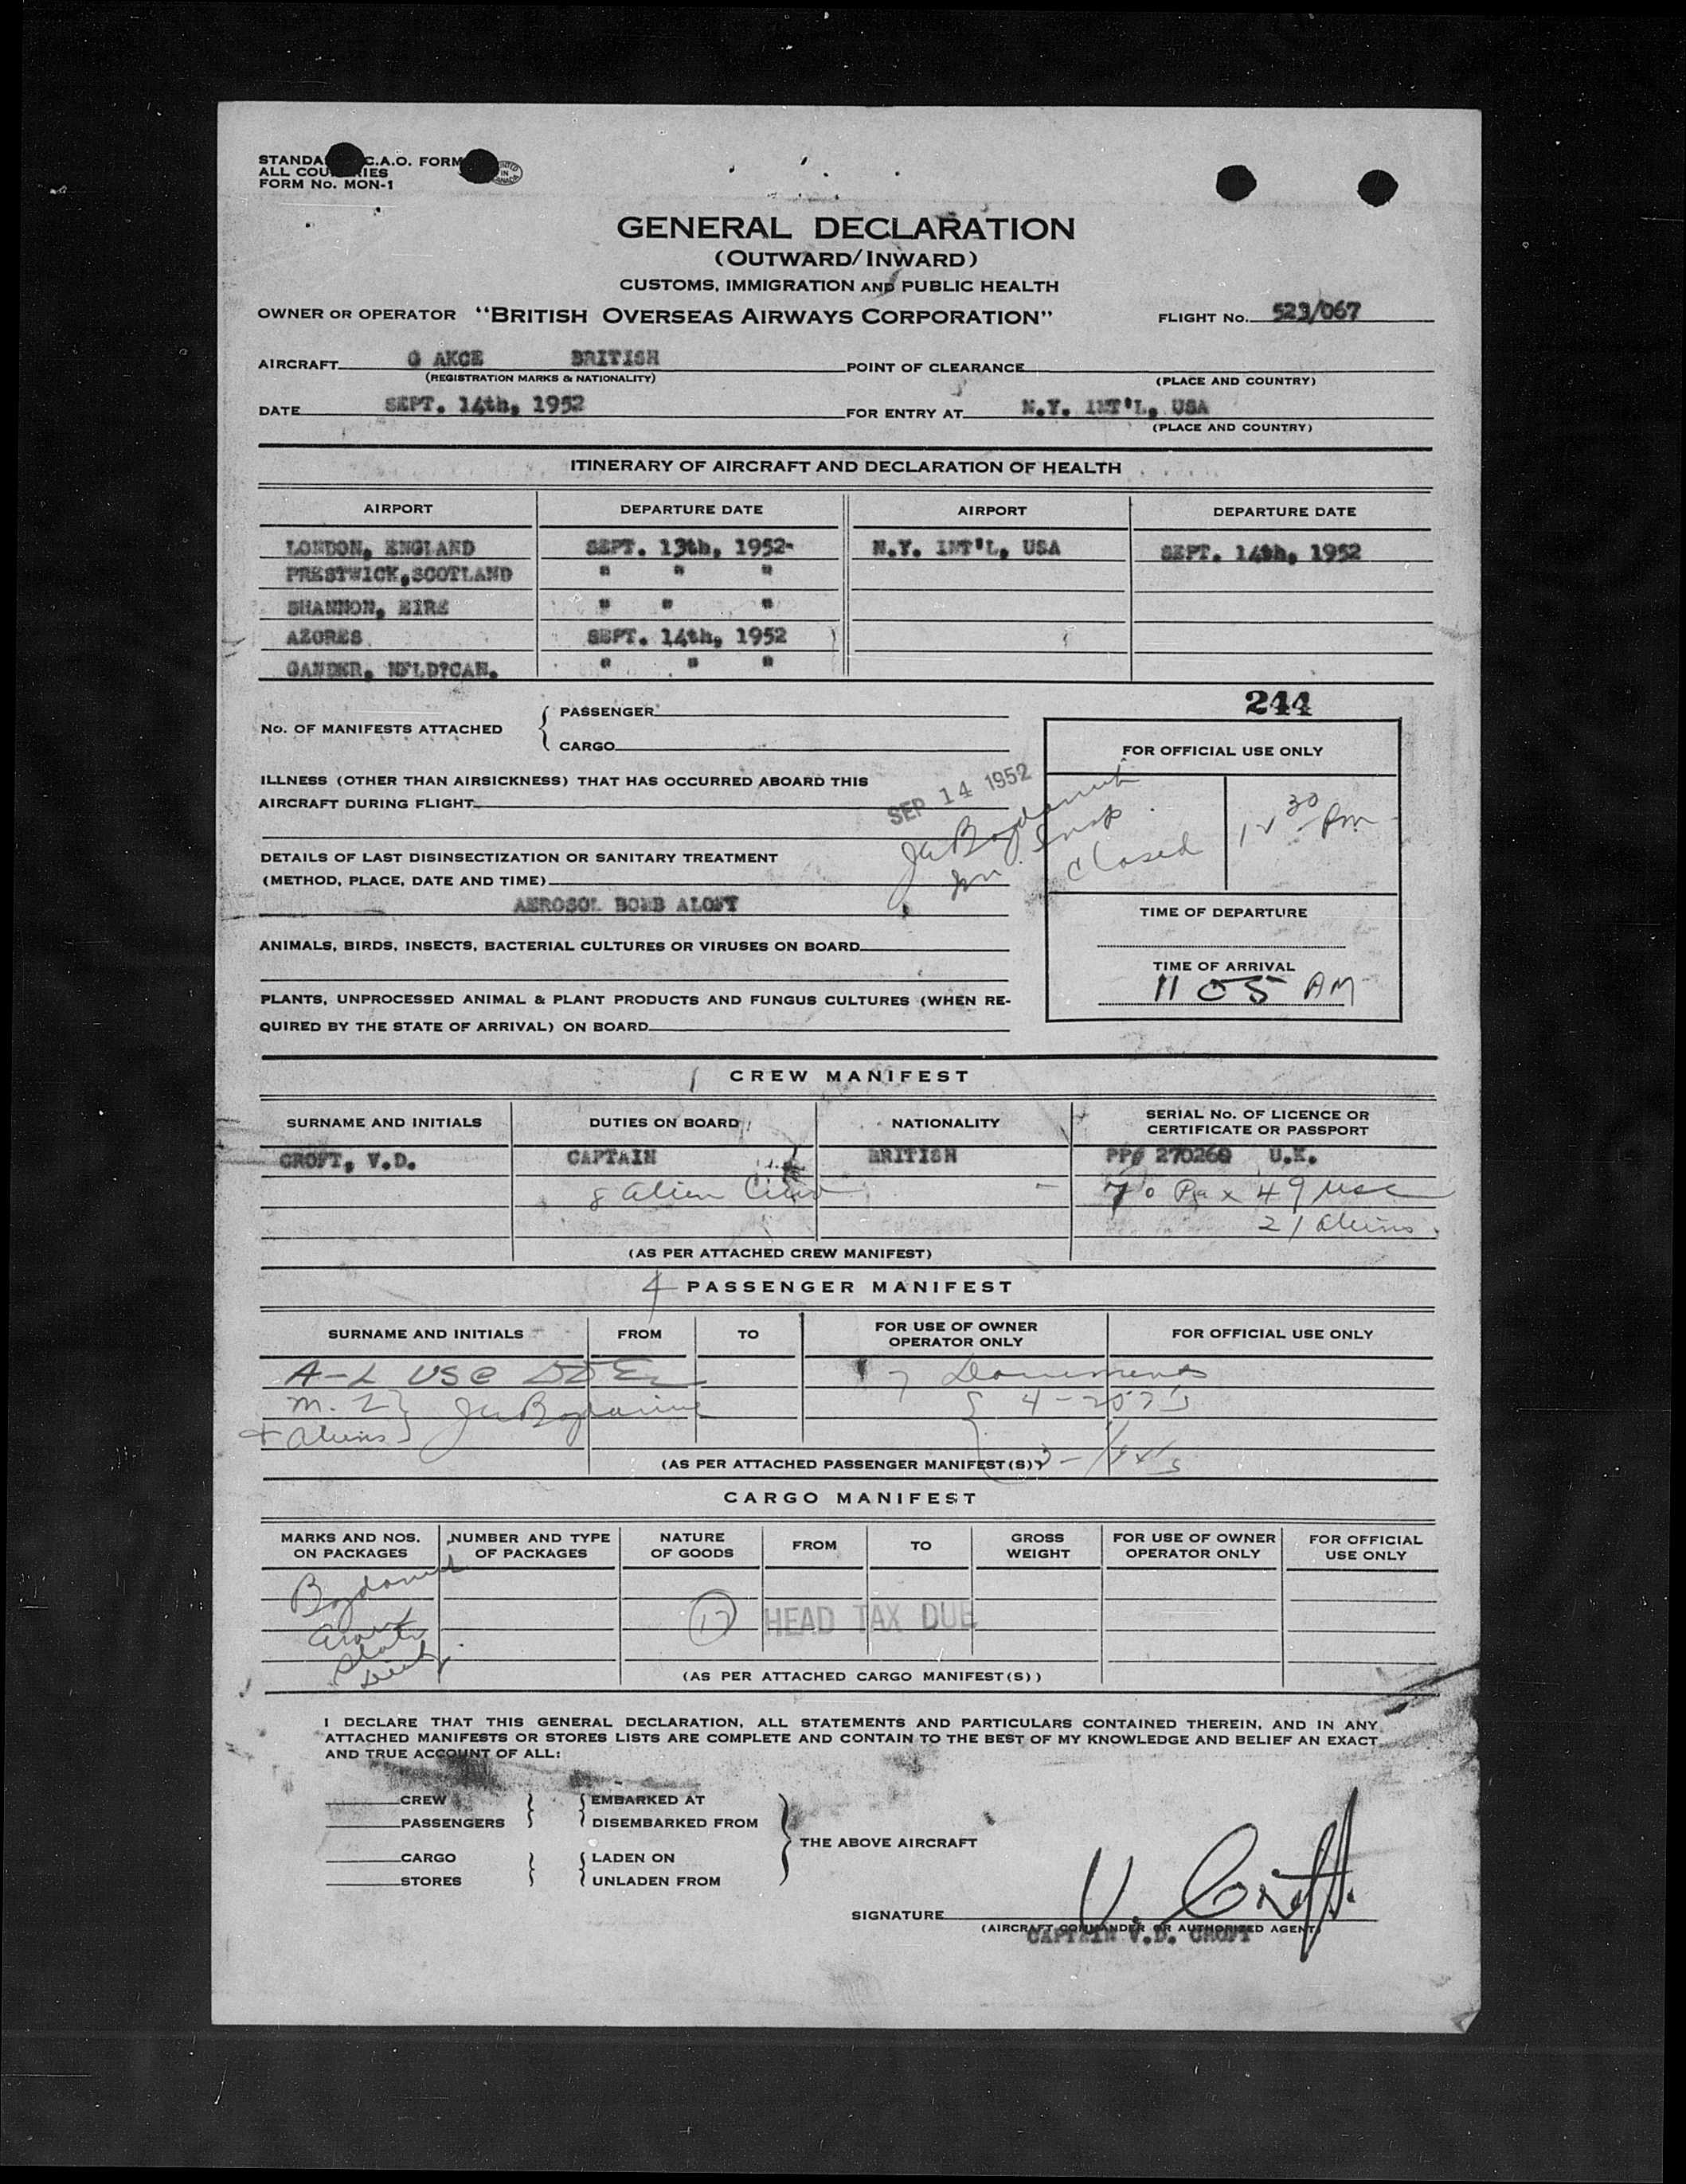 STANDA C.A.O. FORM
ALL COU RIES
FORM No. MON-1
PRINTED IN CANADA
GENERAL DECLARATION
(OUTWARD/INWARD)
CUSTOMS, IMMIGRATION AND PUBLIC HEALTH
OWNER OR OPERATOR "BRITISH OVERSEAS AIRWAYS CORPORATION" FLIGHT No. 523/067
AIRCRAFT G AKCE BRITISH POINT OF CLEARANCE
(REGISTRATION MARKS & NATIONALITY) (PLACE AND COUNTRY)
DATE SEPT. 14th, 1952 FOR ENTRY AT N.Y. INT'L, USA
(PLACE AND COUNTRY)
ITINERARY OF AIRCRAFT AND DECLARATION OF HEALTH
AIRPORT DEPARTURE DATE AIRPORT DEPARTURE DATE
LONDON, ENGLAND SEPT. 13th, 1952- N.Y. INT'L, USA SEPT. 14th, 1952
PRESTWICK,SCOTLAND " " "
SHANNON, EIRE " " "
AZORES SEPT. 14th, 1952
GANDER, NFLD?CAN. " " "
244
No. OF MANIFESTS ATTACHED { PASSENGER
CARGO
FOR OFFICIAL USE ONLY
ILLNESS (OTHER THAN AIRSICKNESS) THAT HAS OCCURRED ABOARD THIS
AIRCRAFT DURING FLIGHT
SEP 14 1952
Closed 12 30 Pm
DETAILS OF LAST DISINSECTIZATION OR SANITARY TREATMENT
(METHOD, PLACE, DATE AND TIME)
AEROSOL BOMB ALOFT
TIME OF DEPARTURE
ANIMALS, BIRDS, INSECTS, BACTERIAL CULTURES OR VIRUSES ON BOARD
TIME OF ARRIVAL
11 05 AM
PLANTS, UNPROCESSED ANIMAL & PLANT PRODUCTS AND FUNGUS CULTURES (WHEN RE-
QUIRED BY THE STATE OF ARRIVAL) ON BOARD
1 CREW MANIFEST
SURNAME AND INITIALS DUTIES ON BOARD NATIONALITY SERIAL No. OF LICENCE OR
CERTIFICATE OR PASSPORT
CROFT, V.D. CAPTAIN BRITISH PP# 270260 U.K.
8 Alien Crew 70 Pax 49 USC
21 Aliens
(AS PER ATTACHED CREW MANIFEST)
4 PASSENGER MANIFEST
SURNAME AND INITIALS FROM TO FOR USE OF OWNER
OPERATOR ONLY FOR OFFICIAL USE ONLY
A-L USC 7 Documents
M-Z}
+ Aliens}
(AS PER ATTACHED PASSENGER MANIFEST(S))
CARGO MANIFEST
MARKS AND NOS.
ON PACKAGES NUMBER AND TYPE
OF PACKAGES NATURE
OF GOODS FROM TO GROSS
WEIGHT FOR USE OF OWNER
OPERATOR ONLY FOR OFFICIAL
USE ONLY
HEAD TAX DUE
(AS PER ATTACHED CARGO MANIFEST(S))
I DECLARE THAT THIS GENERAL DECLARATION, ALL STATEMENTS AND PARTICULARS CONTAINED THEREIN, AND IN ANY
ATTACHED MANIFESTS OR STORES LISTS ARE COMPLETE AND CONTAIN TO THE BEST OF MY KNOWLEDGE AND BELIEF AN EXACT
AND TRUE ACCOUNT OF ALL:
CREW EMBARKED AT
PASSENGERS DISEMBARKED FROM
THE ABOVE AIRCRAFT
CARGO LADEN ON
STORES UNLADEN FROM
SIGNATURE V. Croft.
(AIRCRAFT COMMANDER OR AUTHORIZED AGENT)
CAPTAIN V.D. CROFT